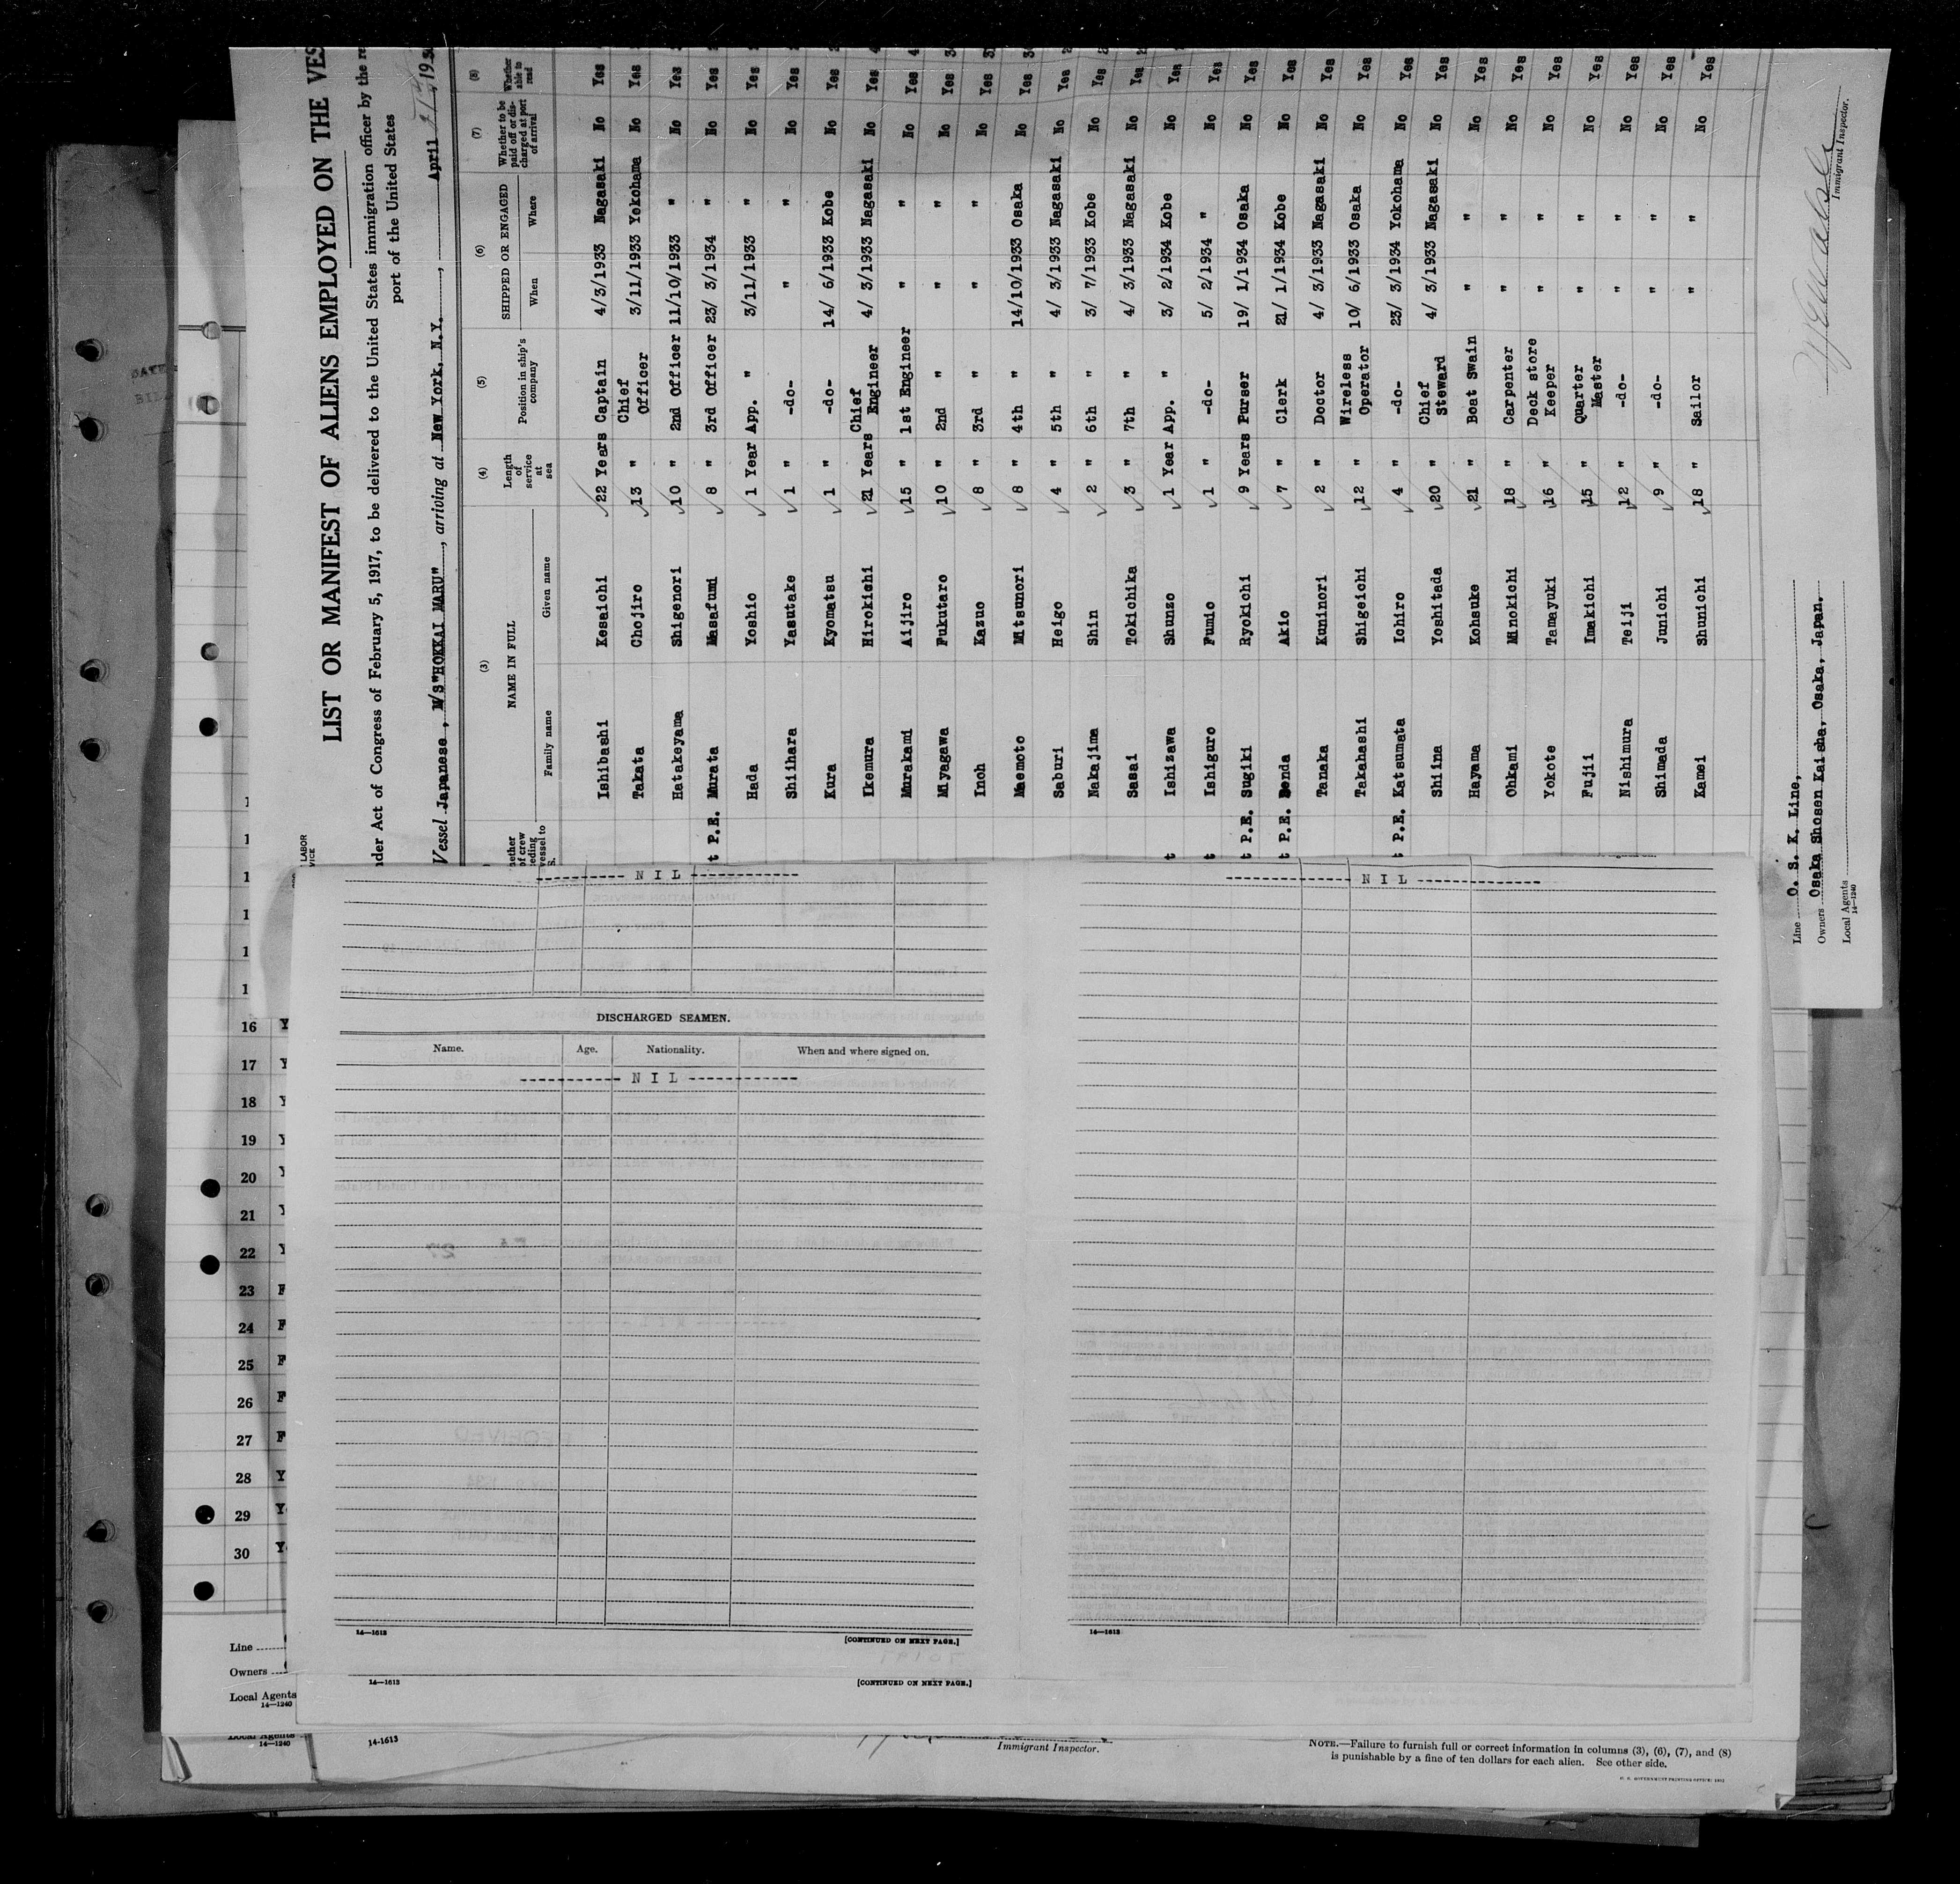 LIST OR MANIFEST OF ALIENS EMPLOYED ON THE VES
nder Act of Congress of February 5, 1917, to be delivered to the United States immigration officer by the re
port of the United States
Vessel Japanese, M/S"HOKKAI MARU", arriving at New York, N.Y., April , 193
LABOR
VICE
(3) (4) (5) (6) (7) (8)
NAME IN FULL Length of service at sea Position in ship's company SHIPPED OR ENGAGED Whether to be paid off or discharged at port of arrival Whether able to read
Family name Given name When Where
Ishibashi Kesaichi 22 Years Captain 4/3/1933 Nagasaki No Yes
Takata Chojiro 13 " Chief Officer 3/11/1933 Yokohama No Yes
Hatakeyama Shigenori 10 " 2nd Officer 11/10/1933 " No Yes
t P.E. Murata Masafumi 8 " 3rd Officer 23/ 3/1934 " No Yes
Hada Yoshio 1 Year App. " 3/11/1933 " No Yes
Shiihara Yasutake 1 " -do- " " No Yes
Kura Kyomatsu 1 " -do- 14/ 6/1933 Kobe No Yes
Ikemura Hirokichi 21 Years Chief Engineer 4/ 3/1933 Nagasaki No Yes
Murakami Aijiro 15 " 1st Engineer " " No Yes
Miyagawa Fukutaro 10 " 2nd " " " No Yes
Inoh Kazuo 8 " 3rd " " " No Yes
Maemoto Mitsunori 8 " 4th " 14/10/1933 Osaka No Yes
Saburi Heigo 4 " 5th " 4/ 3/1933 Nagasaki No Yes
Nakajima Shin 2 " 6th " 3/ 7/1933 Kobe No Yes
Sasai Tokichika 3 " 7th " 4/ 3/1933 Nagasaki No Yes
t Ishizawa Shunzo 1 Year App. " 3/ 2/1934 Kobe No Yes
t Ishiguro Fumio 1 " -do- 5/ 2/1934 " No Yes
t P.E. Sugiki Ryokichi 9 Years Purser 19/ 1/1934 Osaka No Yes
t P.E. Benda Akio 7 " Clerk 21/ 1/1934 Kobe No Yes
Tanaka Kuninori 2 " Doctor 4/ 3/1933 Nagasaki No Yes
Takahashi Shigeichi 12 " Wireless Operator 10/ 6/1933 Osaka No Yes
t P.E. Katsumata Iohiro 4 " -do- 23/ 3/1934 Yokohama No Yes
Shiina Yoshitada 20 " Chief Steward 4/ 3/1933 Nagasaki No Yes
Hayama Kohsuke 21 " Boat Swain " " No Yes
Ohkami Minokichi 18 " Carpenter " " No Yes
Yokote Tamayuki 16 " Deck store Keeper " " No Yes
Fujii Imakichi 15 " Quarter Master " " No Yes
Nishimura Teiji 12 " -do- " " No Yes
Shimada Junichi 9 " -do- " " No Yes
Kamei Shunichi 18 " Sailor " " No Yes
Immigrant Inspector.
Line O. S. K. Line,
Owners Osaka Shosen Kaisha, Osaka, Japan.
Local Agents
14—1240
NIL
NIL
DISCHARGED SEAMEN.
Name. Age. Nationality. When and where signed on.
NIL
16 Y
17 Y
18 Y
19 Y
20 Y
21 Y
22 Y
23 F
24 F
25 F
26 F
27 F
28 Y
29 Y
30 Y
Line
Owners
Local Agents
14—1240
14—1613 [CONTINUED ON NEXT PAGE.]
14—1613
14—1613 [CONTINUED ON NEXT PAGE.]
Local Agents
14—1240
14-1613
Immigrant Inspector.
NOTE.—Failure to furnish full or correct information in columns (3), (6), (7), and (8)
is punishable by a fine of ten dollars for each alien. See other side.